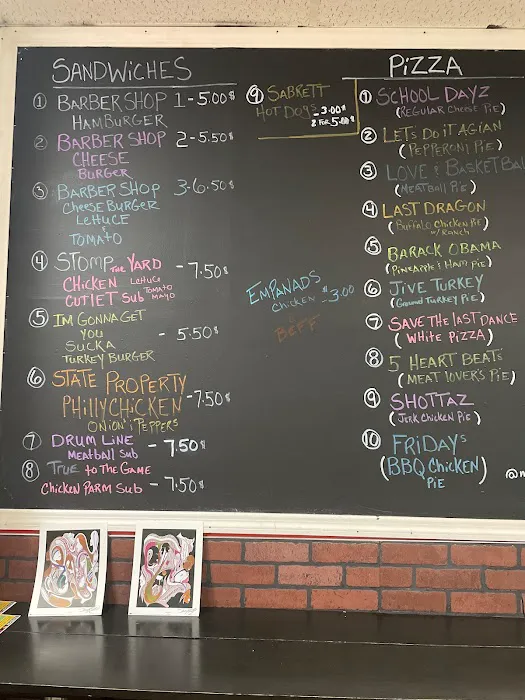 SANDWICHES
① BARBER SHOP 1-5.00$
HAMBURGER
② BARBER SHOP 2-5.50$
CHEESE
BURGER
③ BARBER SHOP 3-6.50$
CHEESE BURGER
LETTUCE
&
TOMATO
④ STOMP THE YARD - 7.50$
CHICKEN LETTUCE
CUTLET SUB TOMATO
MAYO
⑤ IM GONNA GET
YOU - 5.50$
SUCKA
TURKEY BURGER
⑥ STATE PROPERTY
PHILLY CHICKEN -7.50$
ONION i PEPPERS
⑦ DRUM LINE - 7.50$
MEATBALL SUB
⑧ TRUE TO THE GAME
CHICKEN PARM SUB - 7.50$
⑨ SABRETT
HOT DOGS - 3.00$
2 FOR 5.00$
EMPANADS
CHICKEN $3.00
BEFF
PIZZA
① SCHOOL DAYZ
(REGULAR CHEESE PIE)
② LETS DO IT AGIAN
(PEPPERONI PIE)
③ LOVE & BASKETBAL
(MEATBALL PIE)
④ LAST DRAGON
(BUFFALO CHICKEN PIE)
W/ RANCH
⑤ BARACK OBAMA
(PINEAPPLE & HAM PIE)
⑥ JIVE TURKEY
(GROUND TURKEY PIE)
⑦ SAVE THE LAST DANCE
(WHITE PIZZA)
⑧ 5 HEART BEATS
(MEAT LOVER'S PIE)
⑨ SHOTTAZ
(JERK CHICKEN PIE)
⑩ FRIDAYS
(BBQ CHICKEN)
PIE